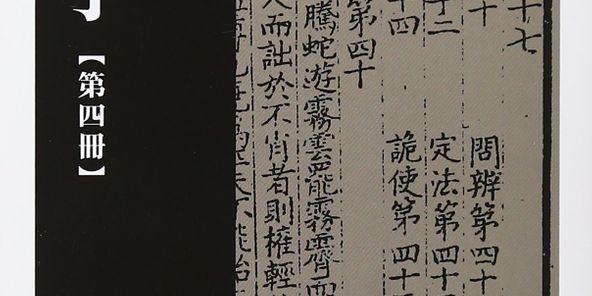 【第四冊】
十七
十 問辨第四十
十二 定法第四十
十四 詭使第四十
第四十
騰蛇遊霧雲罷霧霽而
人而詘於不肖者則權輕
不能治